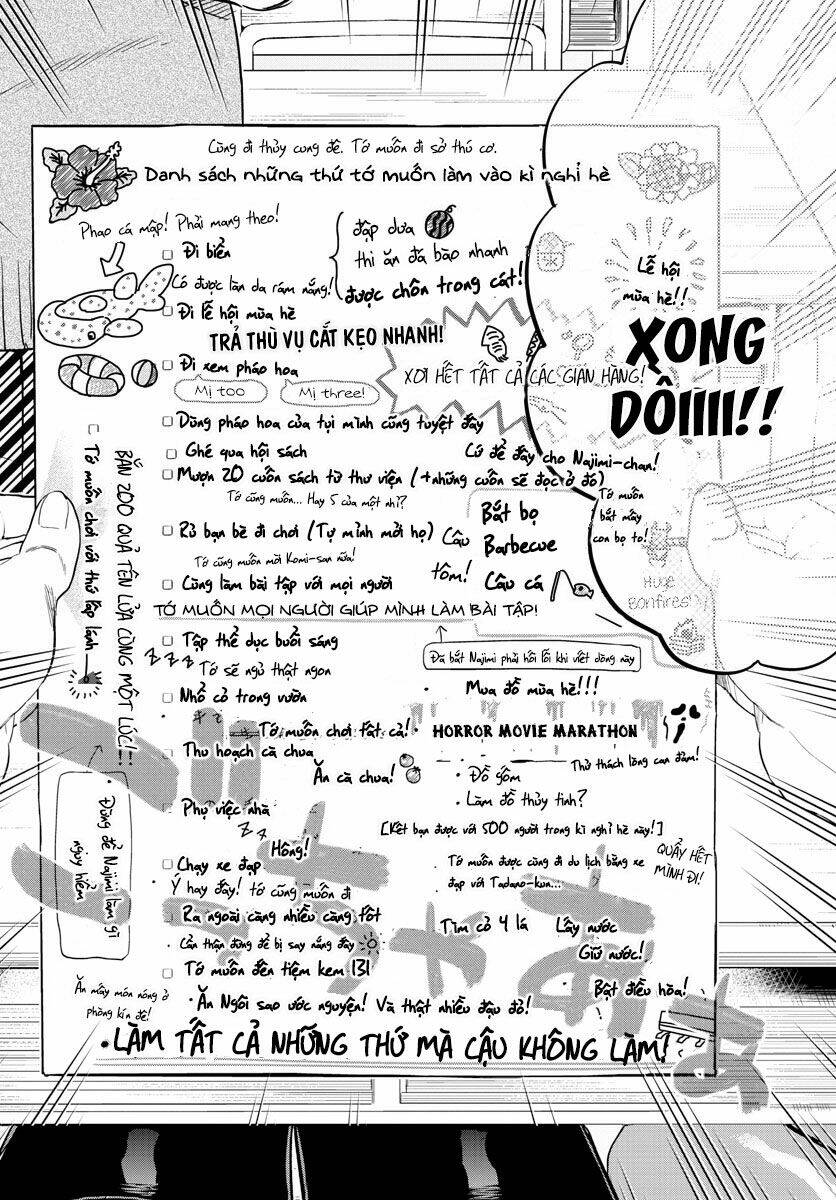 Cùng đi thủy cung đê. Tớ muốn đi sở thú cơ.
Danh sách những thứ tớ muốn làm vào kì nghỉ hè
Phao cá mập! Phải mang theo!
Đi biển
đập dưa
thi ăn đá bào nhanh
được chôn trong cát!
Có được làn da rám nắng!
Đi lễ hội mùa hè
Lễ hội
mùa hè!!
TRẢ THÙ VỤ CẮT KẸO NHANH!
XƠI HẾT TẤT CẢ CÁC GIAN HÀNG!
XONG
DÔIIIII!!
Đi xem pháo hoa
Mị too
Mị three!
Dùng pháo hoa của tụi mình cũng tuyệt đấy
Ghé qua hội sách
Cứ để đấy cho Najimi-chan!
Mượn 20 cuốn sách từ thư viện (+những cuốn sẽ đọc ở đó)
Tớ cũng muốn... Hay 5 của một nhỉ?
Rủ bạn bè đi chơi (Tự mình mời họ)
Tớ cũng muốn mời Komi-san nữa!
Cùng làm bài tập với mọi người
Câu
tôm!
Bắt bọ
Barbecue
Câu cá
Tớ muốn
bắt mấy
con bọ to!
Huge
Bonfires!
TỚ MUỐN MỌI NGƯỜI GIÚP MÌNH LÀM BÀI TẬP!
Đã bắt Najimi phải hối lỗi khi viết dòng này
Tớ muốn chơi với thứ lấp lánh
BẮN 200 QUẢ TÊN LỬA CÙNG MỘT LÚC!!
Đừng để Najimi làm gì
nguy hiểm
Tập thể dục buổi sáng
zzz
Tớ sẽ ngủ thật ngon
Nhổ cỏ trong vườn
Mua đồ mùa hè!!!
Tớ muốn chơi tất cả!
HORROR MOVIE MARATHON
Thử thách lòng can đảm!
Thu hoạch cà chua
Ăn cà chua!
Đồ gốm
Làm đồ thủy tinh?
Phụ việc nhà
zz
Hông!
[Kết bạn được với 500 người trong kì nghỉ hè này!]
QUẨY HẾT
MÌNH ĐI!
Chạy xe đạp
Ý hay đấy! tớ cũng muốn đi
Tớ muốn được cùng đi du lịch bằng xe
đạp với Tadano-kun...
Ra ngoài càng nhiều càng tốt
Cẩn thận đừng để bị say nắng đấy
Tìm cỏ 4 lá
Lấy nước
Giữ nước!
Bật điều hòa!
Tớ muốn đến tiệm kem 131
Ăn mấy món nóng ở
phòng kín đê!
Ăn Ngôi sao ước nguyện! Và thật nhiều đậu đỏ!
LÀM TẤT CẢ NHỮNG THỨ MÀ CẬU KHÔNG LÀM!